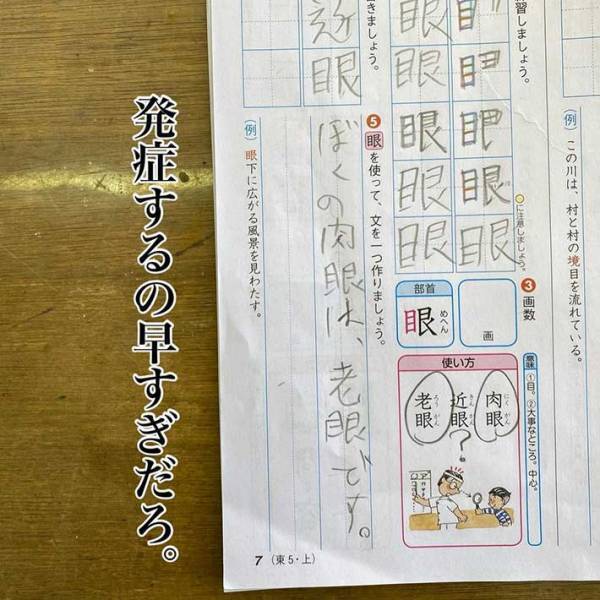 習しましょう。
(例)
この川は、村と村の境目を流れている。
に注意しましょう。
❸画数
画
意味
①目。②大事なところ。中心。
眼
眼
眼
眼
眼
眼
部首
眼
めへん
使い方
肉眼
にくがん
近眼
きんがん
?
老眼
ろうがん
きましょう。
眼
❺眼を使って、文を一つ作りましょう。
ぼくの肉眼は、老眼です。
(例)
眼下に広がる風景を見わたす。
7(東5・上)
発症するの早すぎだろ。